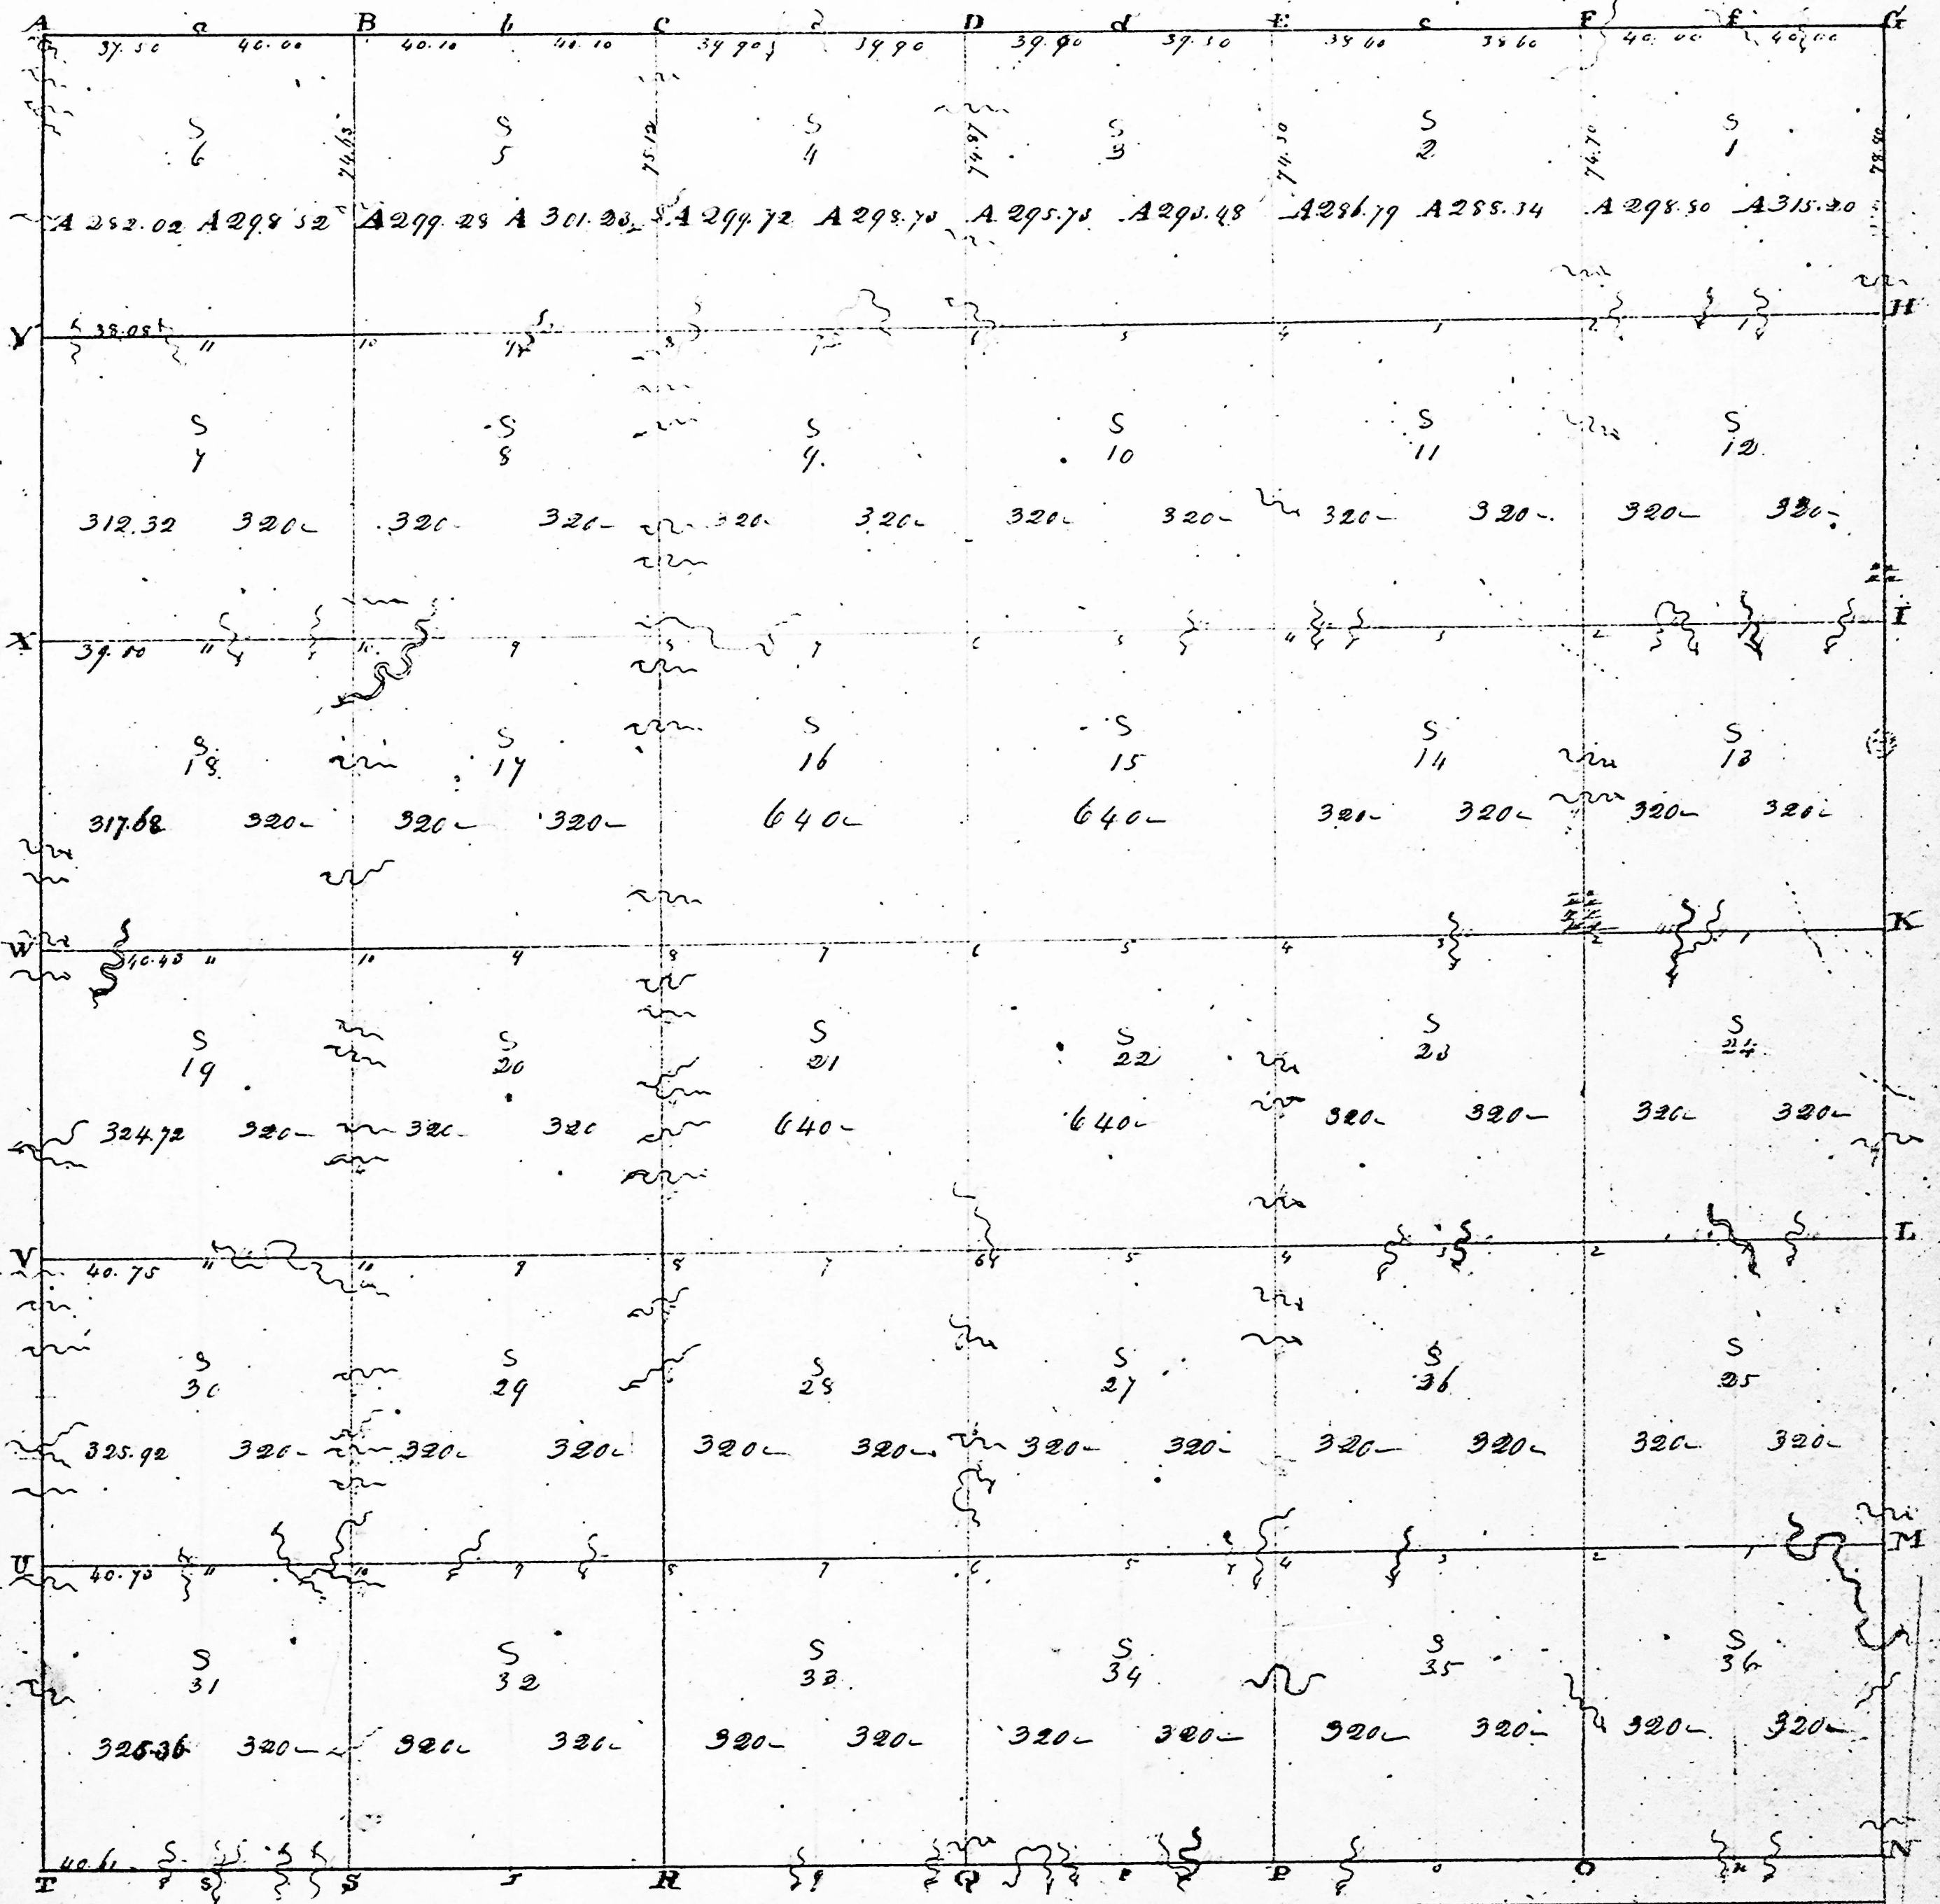 A a B b C c D d E e F f G
37.50 40.00 40.10 40.10 39.90 39.90 39.90 39.50 38.60 38.60 40.00 40.00
S S S S S S
6 74.63 5 75.12 4 74.87 3 74.50 2 74.70 1 78.80
A 282.02 A 298 52 A 299.28 A 301.23 A 299.72 A 298.73 A 295.73 A 293.48 A 286.79 A 288.34 A 298.80 A 315.20
H
Y 38.08 11 10 8 7 6 5 4 3 2 1
S S S S S S
7 8 9. 10 11 12
312.32 320 320 320 320 320 320 320 320 320 320 320
I
X 39.00 11 10 9 8 7 6 5 4 3 2
S S S S S S
18 17 16 15 14 13
317.68 320 320 320 640 640 320 320 320 320
K
W 40.43 11 10 9 8 7 6 5 4 3 2 1
S S S S S S
19 20 21 22 23 24
324.72 320 320 320 640 640 320 320 320 320
L
V 40.75 11 10 9 8 7 6 5 4 3 2
S S S S S S
30 29 28 27 26 25
325.92 320 320 320 320 320 320 320 320 320 320 320
M
U 40.73 11 10 9 8 7 6 5 4 3 2 1
S S S S S S
31 32 33 34 35 36
325.36 320 320 320 320 320 320 320 320 320 320 320
40.61 N
T s S r R q Q P o O n